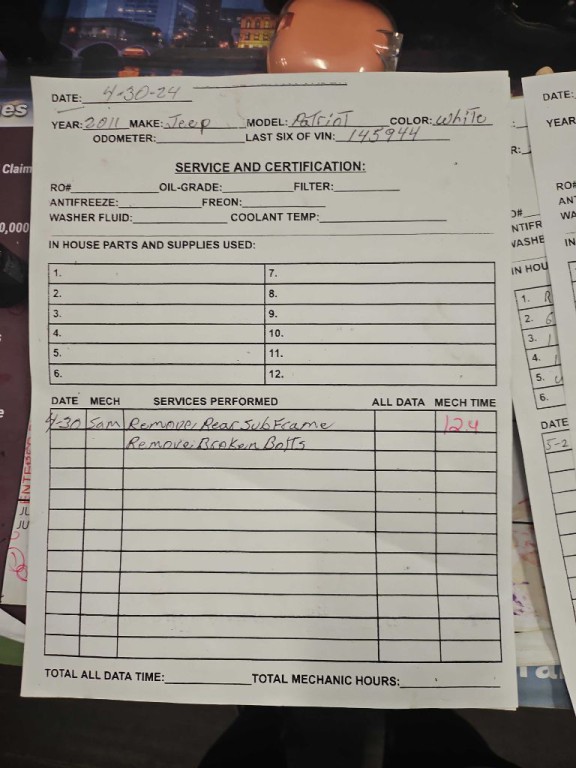 DATE: 4-30-24
YEAR: 2011 MAKE: Jeep MODEL: Patriot COLOR: White
ODOMETER: LAST SIX OF VIN: 145944
SERVICE AND CERTIFICATION:
RO# OIL-GRADE: FILTER:
ANTIFREEZE: FREON:
WASHER FLUID: COOLANT TEMP:
IN HOUSE PARTS AND SUPPLIES USED:
1. 7.
2. 8.
3. 9.
4. 10.
5. 11.
6. 12.
DATE MECH SERVICES PERFORMED ALL DATA MECH TIME
4-30 Sam Remove, Rear Sub Frame 12.4
Remove Broken Bolts
TOTAL ALL DATA TIME: TOTAL MECHANIC HOURS:
es
Claim
0,000
ENTERED
JL
JU
DATE:
YEAR
RO#
AN
WA
IN
NTIFR
WASHE
IN HOU
1. R
2. 6
3.
4.
5.
6.
DATE
5-2